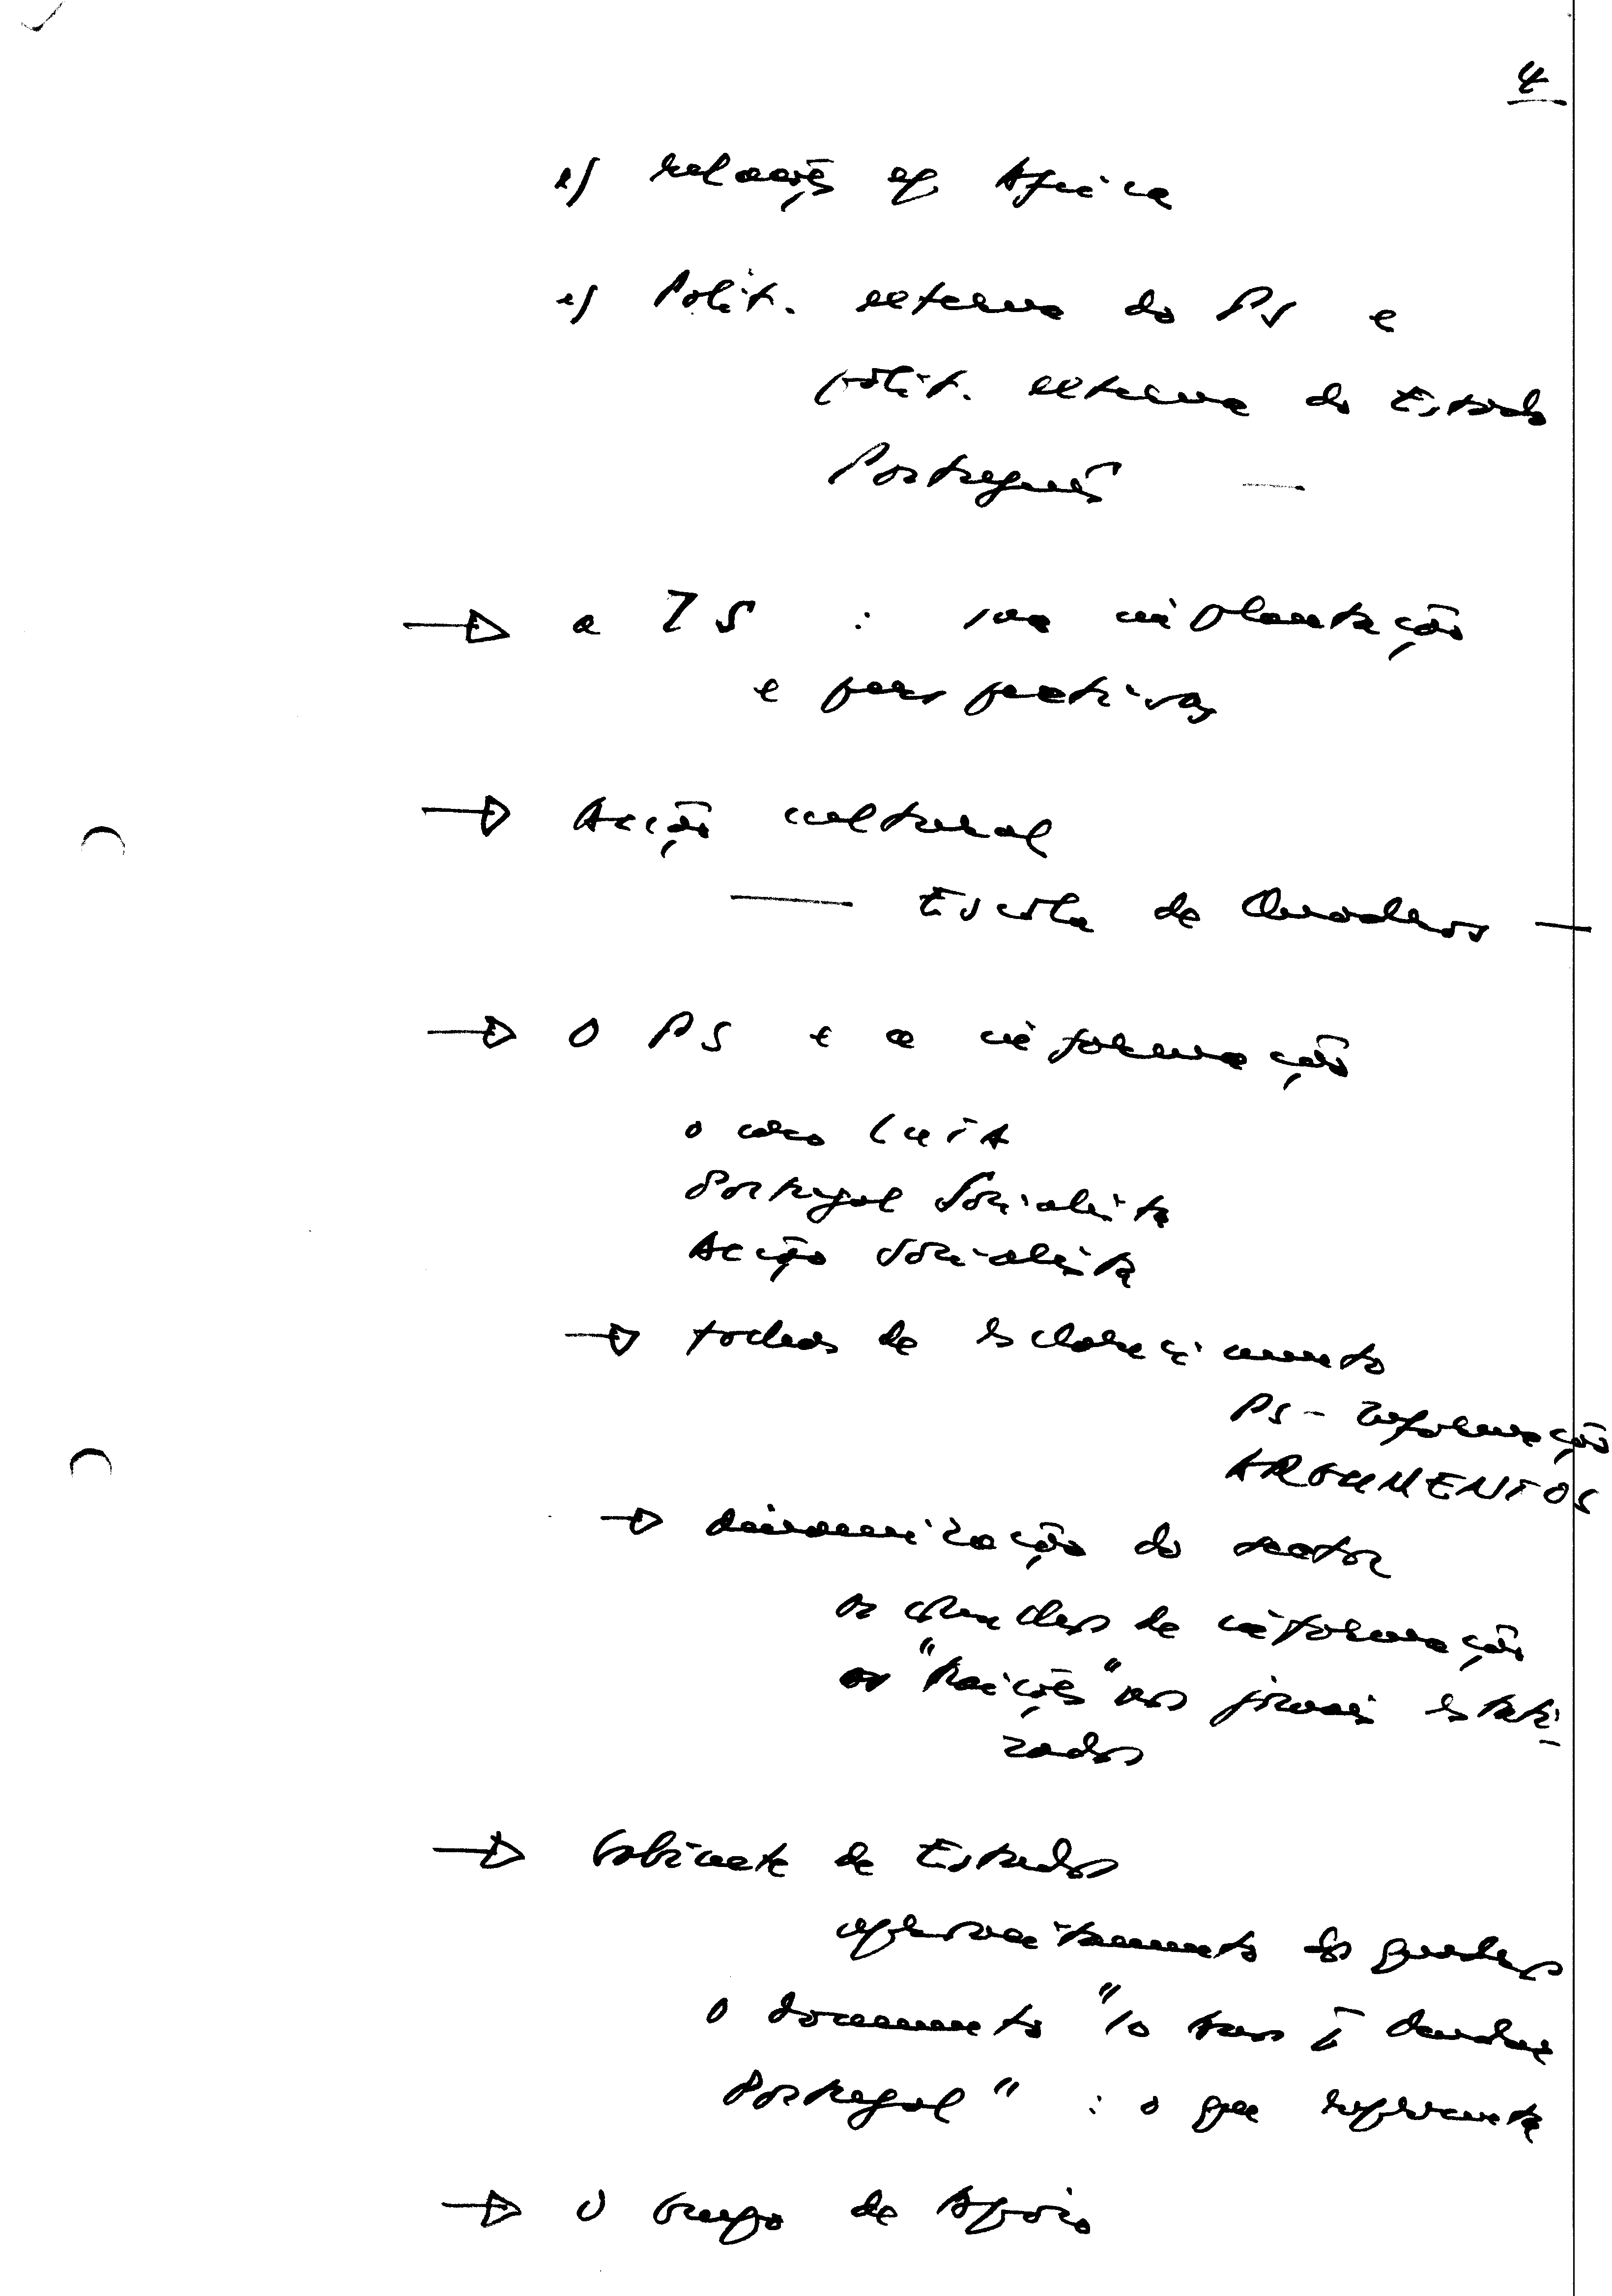 4
e) relações c/ Africa
e) Polit. externa do PS e
polit. externa do Estado
Português —
→ a IS : sua implantação
e perspectivas
→ Acção cultural
— Escola de Quadros —
→ O PS e a informação
o caso Luta
Portugal Socialista
Acção Socialista
→ folhas de esclarecimento
PS - Informação
ARGUMENTOS
→ dinamização do sector
os circulos de informação
as "traições" nos jornais estati
zados
→ Gabinete de Estudos
aproveitamento dos quadros
o documento "10 anos p/ mudar
Portugal" : o que representa
→ O Grupo de Apoio